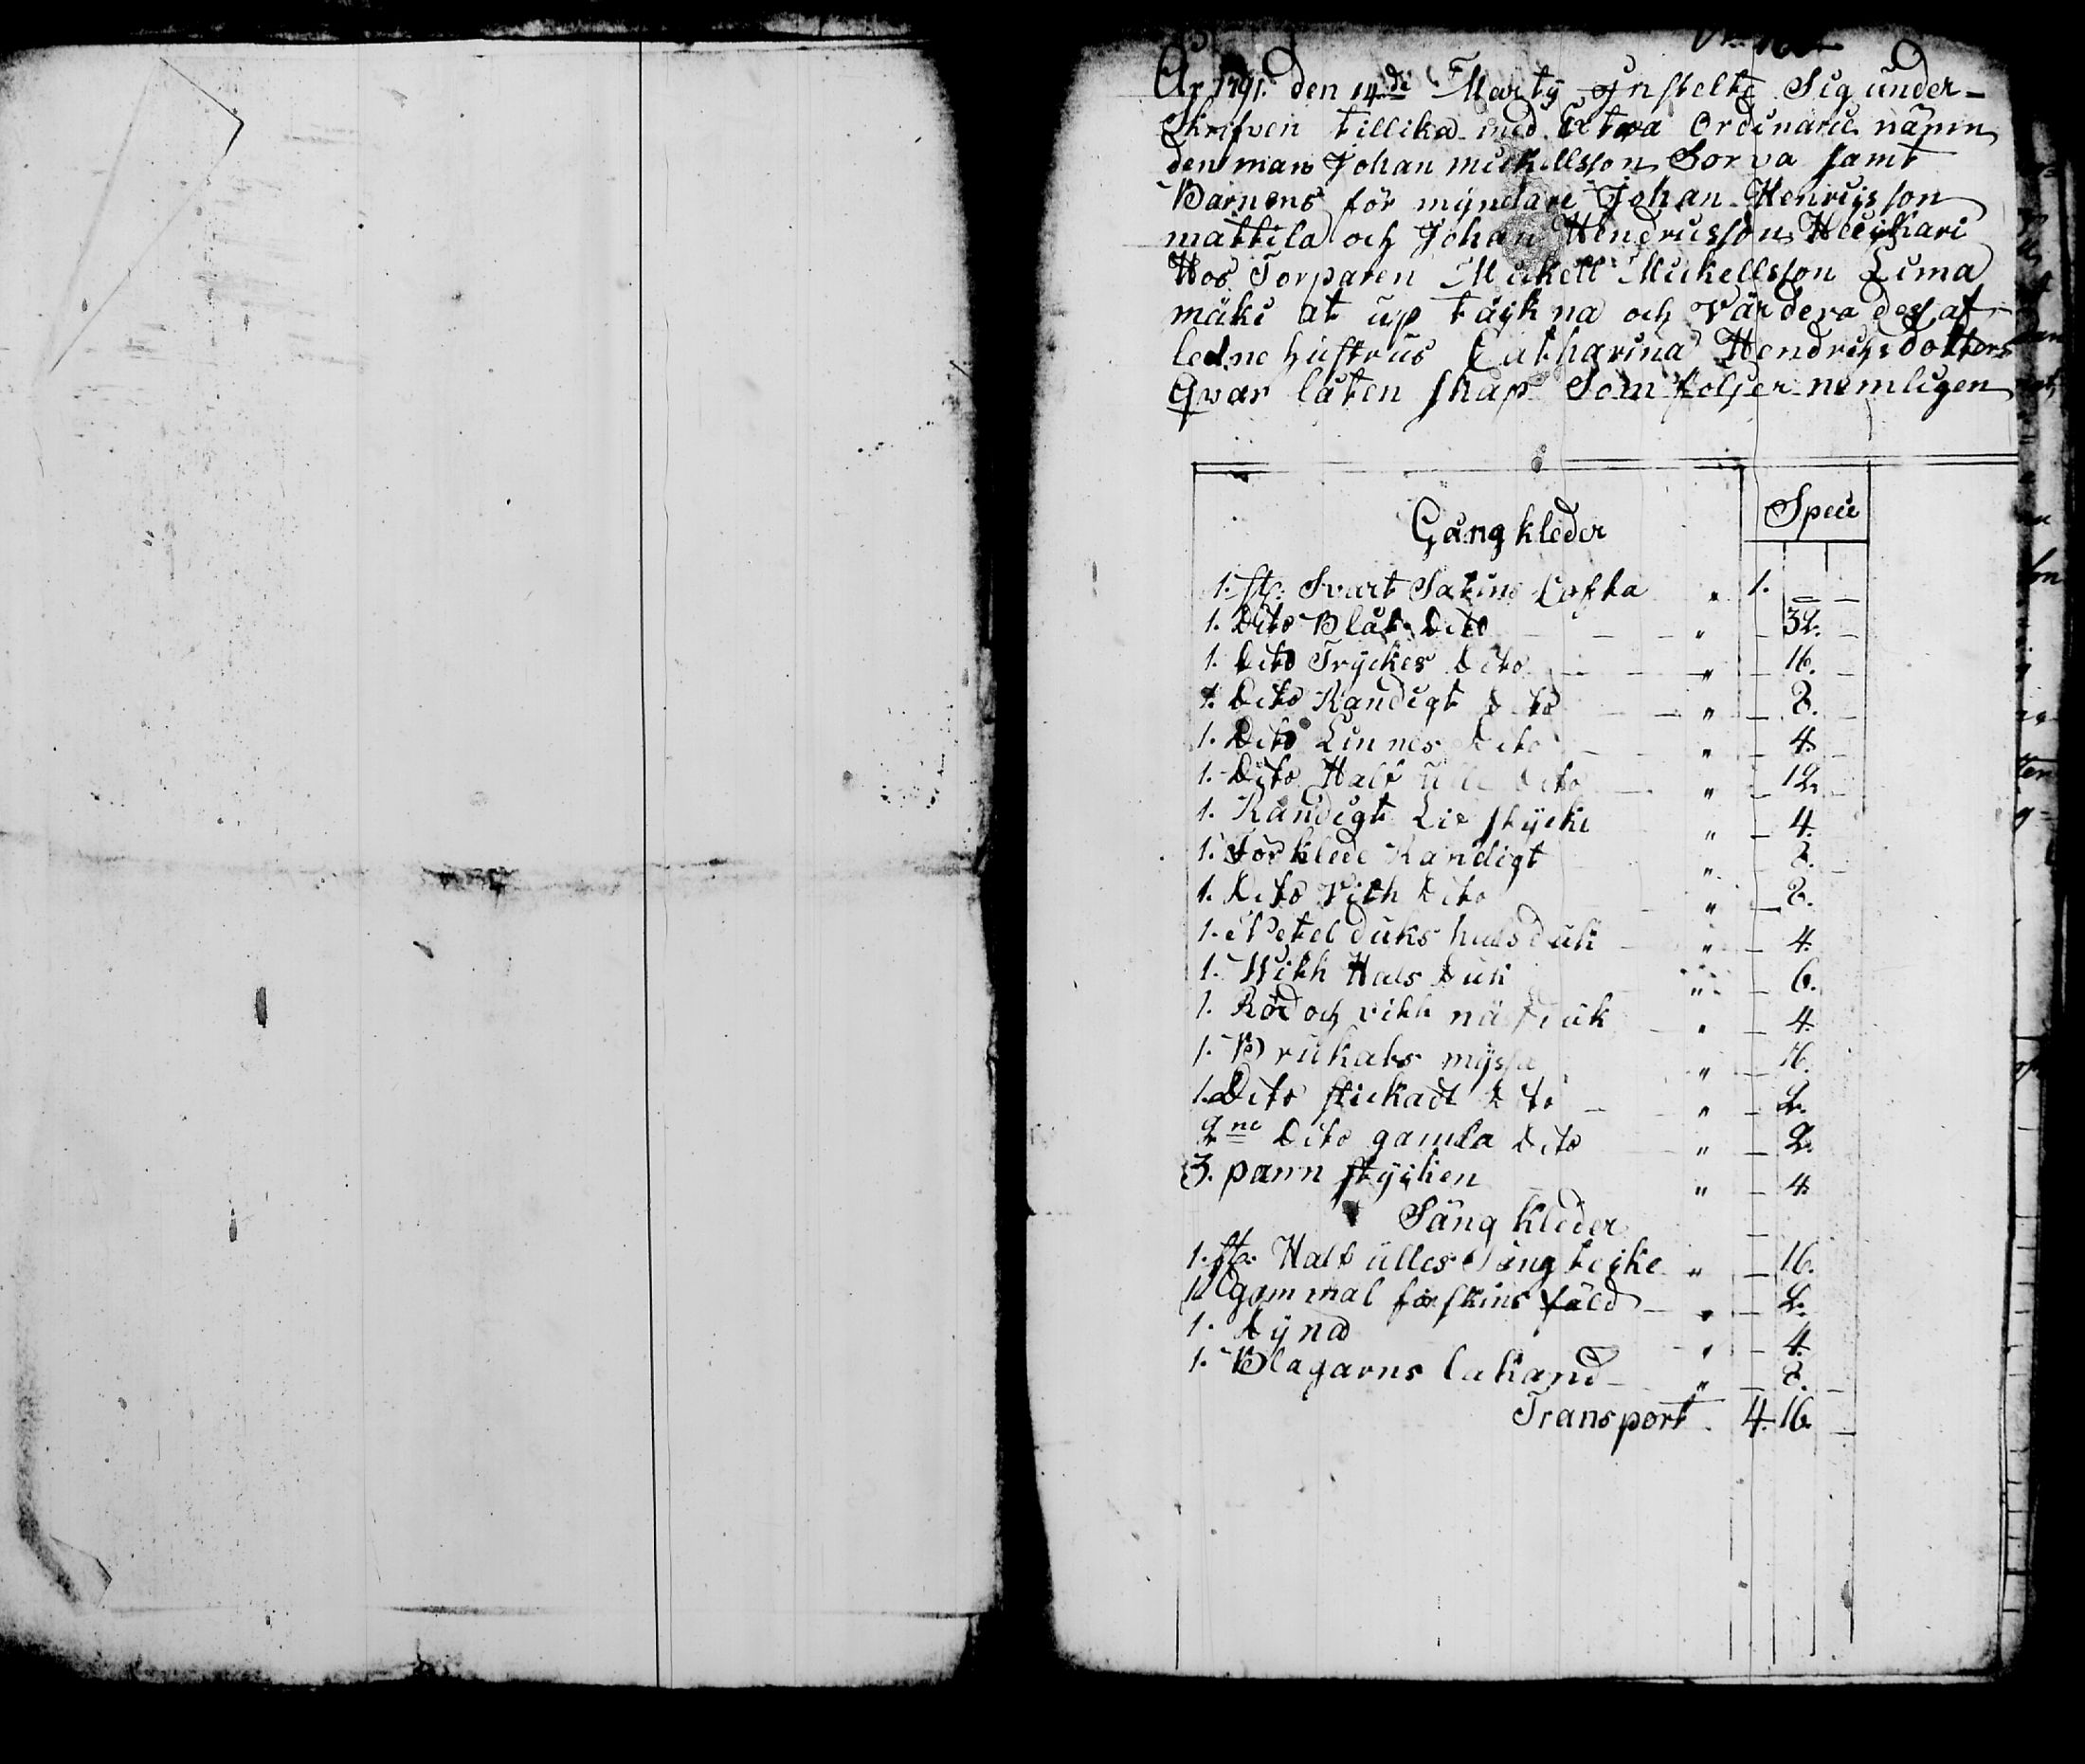 År 1791. den 14de Marty jnstelte Sig under-
Skrifven tillika med Extra Ordinarie nämn
den man Johan mickellsson Sorva samt
Barnens för myndare Johan Henricsson
mattila och Johan Hendricsson Heickari
Hos Torparen Mickell Mickellsson Lima
mäki at up täckna och Värdera dess af-
ledne hustrus Catharina Hendrichsdotters
qvar låten skap Som följer nemligen
Gång kleder
Specie
1. st: Svart Satins Cofta " 1. – –
1. Dito Blåt Dito " – 32. –
1. Dito Tryckes Dito " – 16. –
1. Dito Randigt Dito " – 8. –
1. Dito Linnes Dito " – 4.
1. Dito Half ülle Dito " – 12.
1. Randigt Lif stycke " – 4.
1. Förklede Randigt " – 8.
1. Dito Vith Dito " – 8.
1. Netel duks halsduk " – 4.
1. With Hals Duk " – 6.
1. Röd och vith näsduk " – 4.
1. Brukats myssa " – 16.
1. Dito stickadt Dito " – 2.
2ne Dito gamla Dito " – 2.
3. pann stycken " – 4.
Säng kleder
1. st: Half ülles Sängtecke " – 16.
1. gammal fårskins fäld " – 2.
1. Dyna " – 4.
1. Blagarns lakand " – 8. –
Transport . 4. 16. –